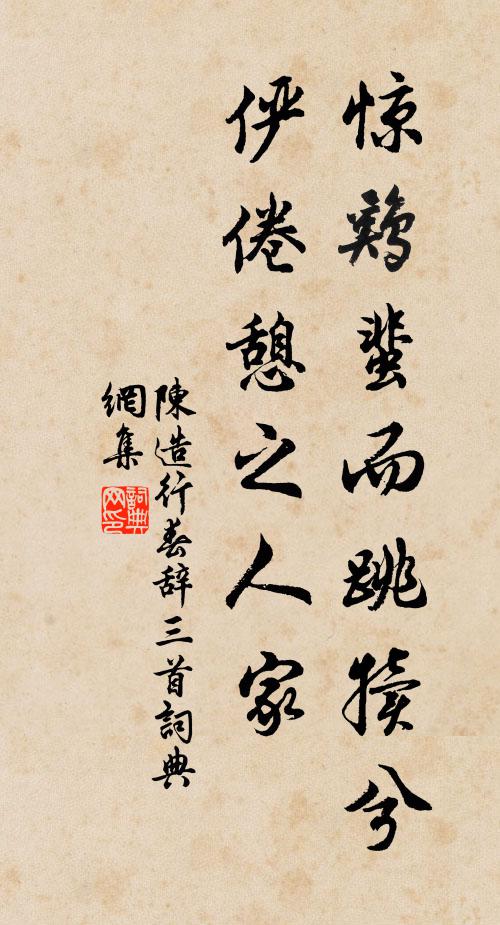 惊鷄蜚而跳犢兮
俨倦憩之人家
陳造行春辞三首詞典
網集
詞典
网印